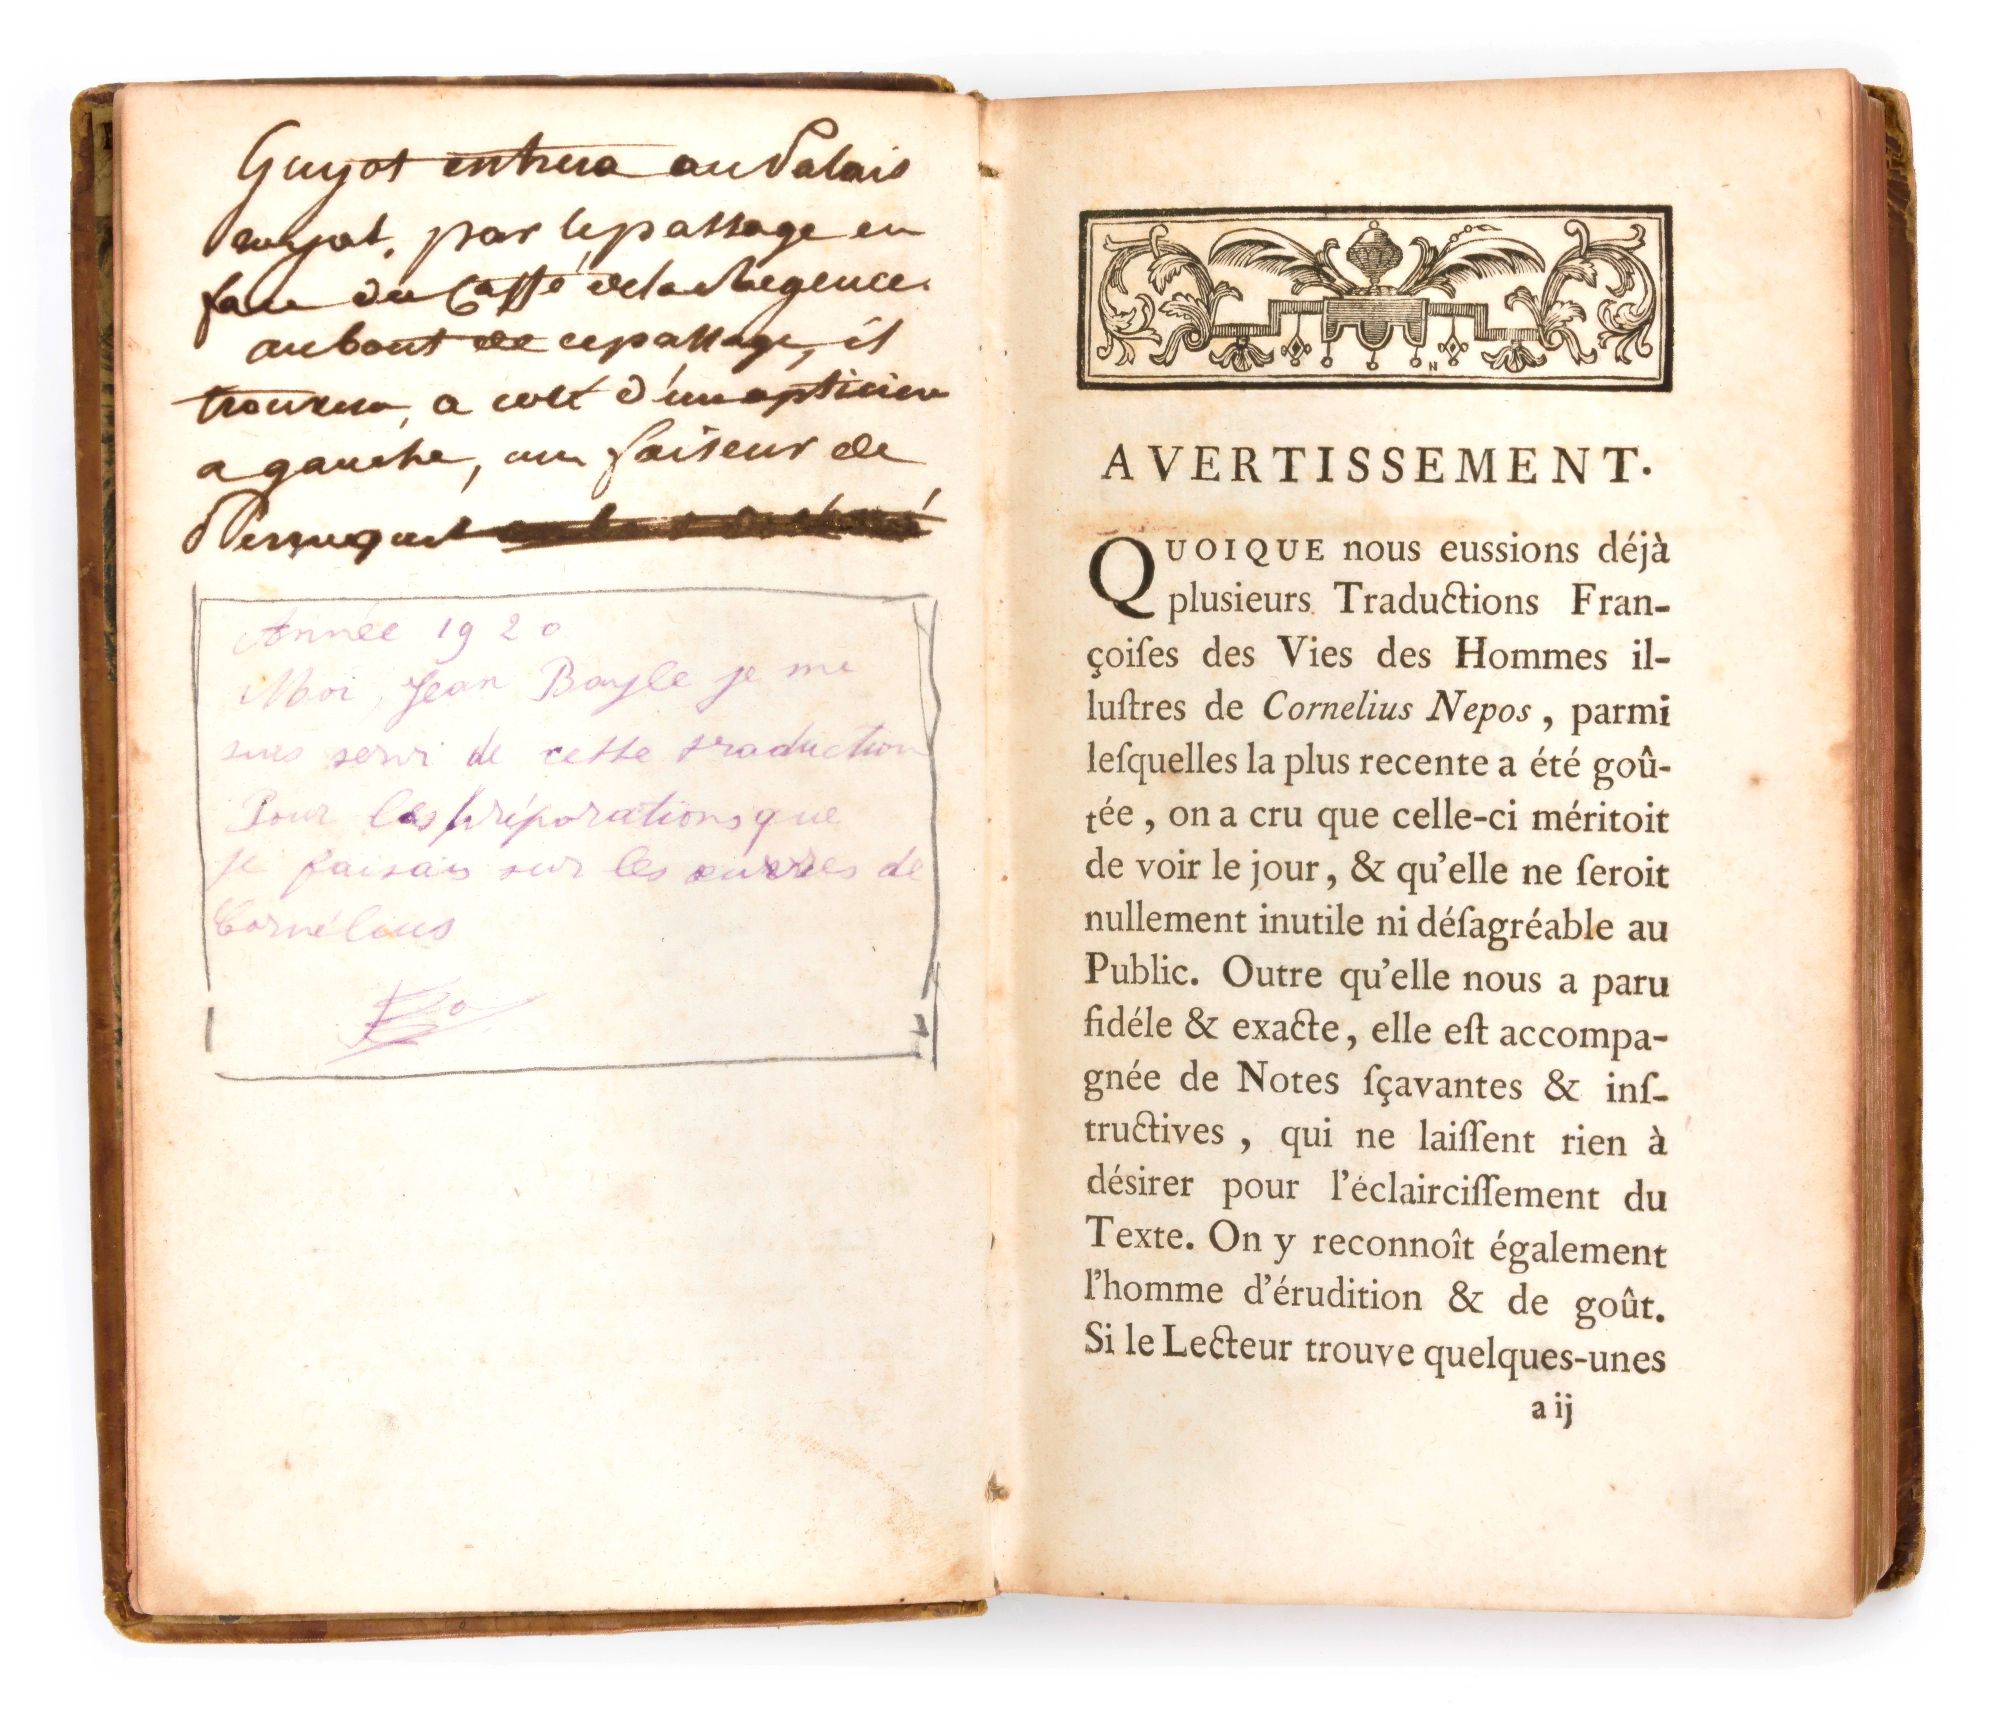 Guyot entrera au Palais
royal, par le passage en
face du Caffé de la Regence.
au bout de ce passage, il
trouvera, a coté d'un opticien
a gauche, un faiseur de
Perruques
Année 1920
Moi, Jean Bayle je me
suis servi de cette traduction
Pour les préparations que
je faisais sur les œuvres de
Cornélius
AVERTISSEMENT.
QUOIQUE nous eussions déjà
plusieurs Traductions Fran-
çoiſes des Vies des Hommes il-
luſtres de Cornelius Nepos, parmi
leſquelles la plus recente a été goû-
tée, on a cru que celle-ci méritoit
de voir le jour, & qu'elle ne ſeroit
nullement inutile ni déſagréable au
Public. Outre qu'elle nous a paru
fidéle & exacte, elle eſt accompa-
gnée de Notes ſçavantes & inſ-
tructives, qui ne laiſſent rien à
désirer pour l'éclairciſſement du
Texte. On y reconnoît également
l'homme d'érudition & de goût.
Si le Lecteur trouve quelques-unes
a ij